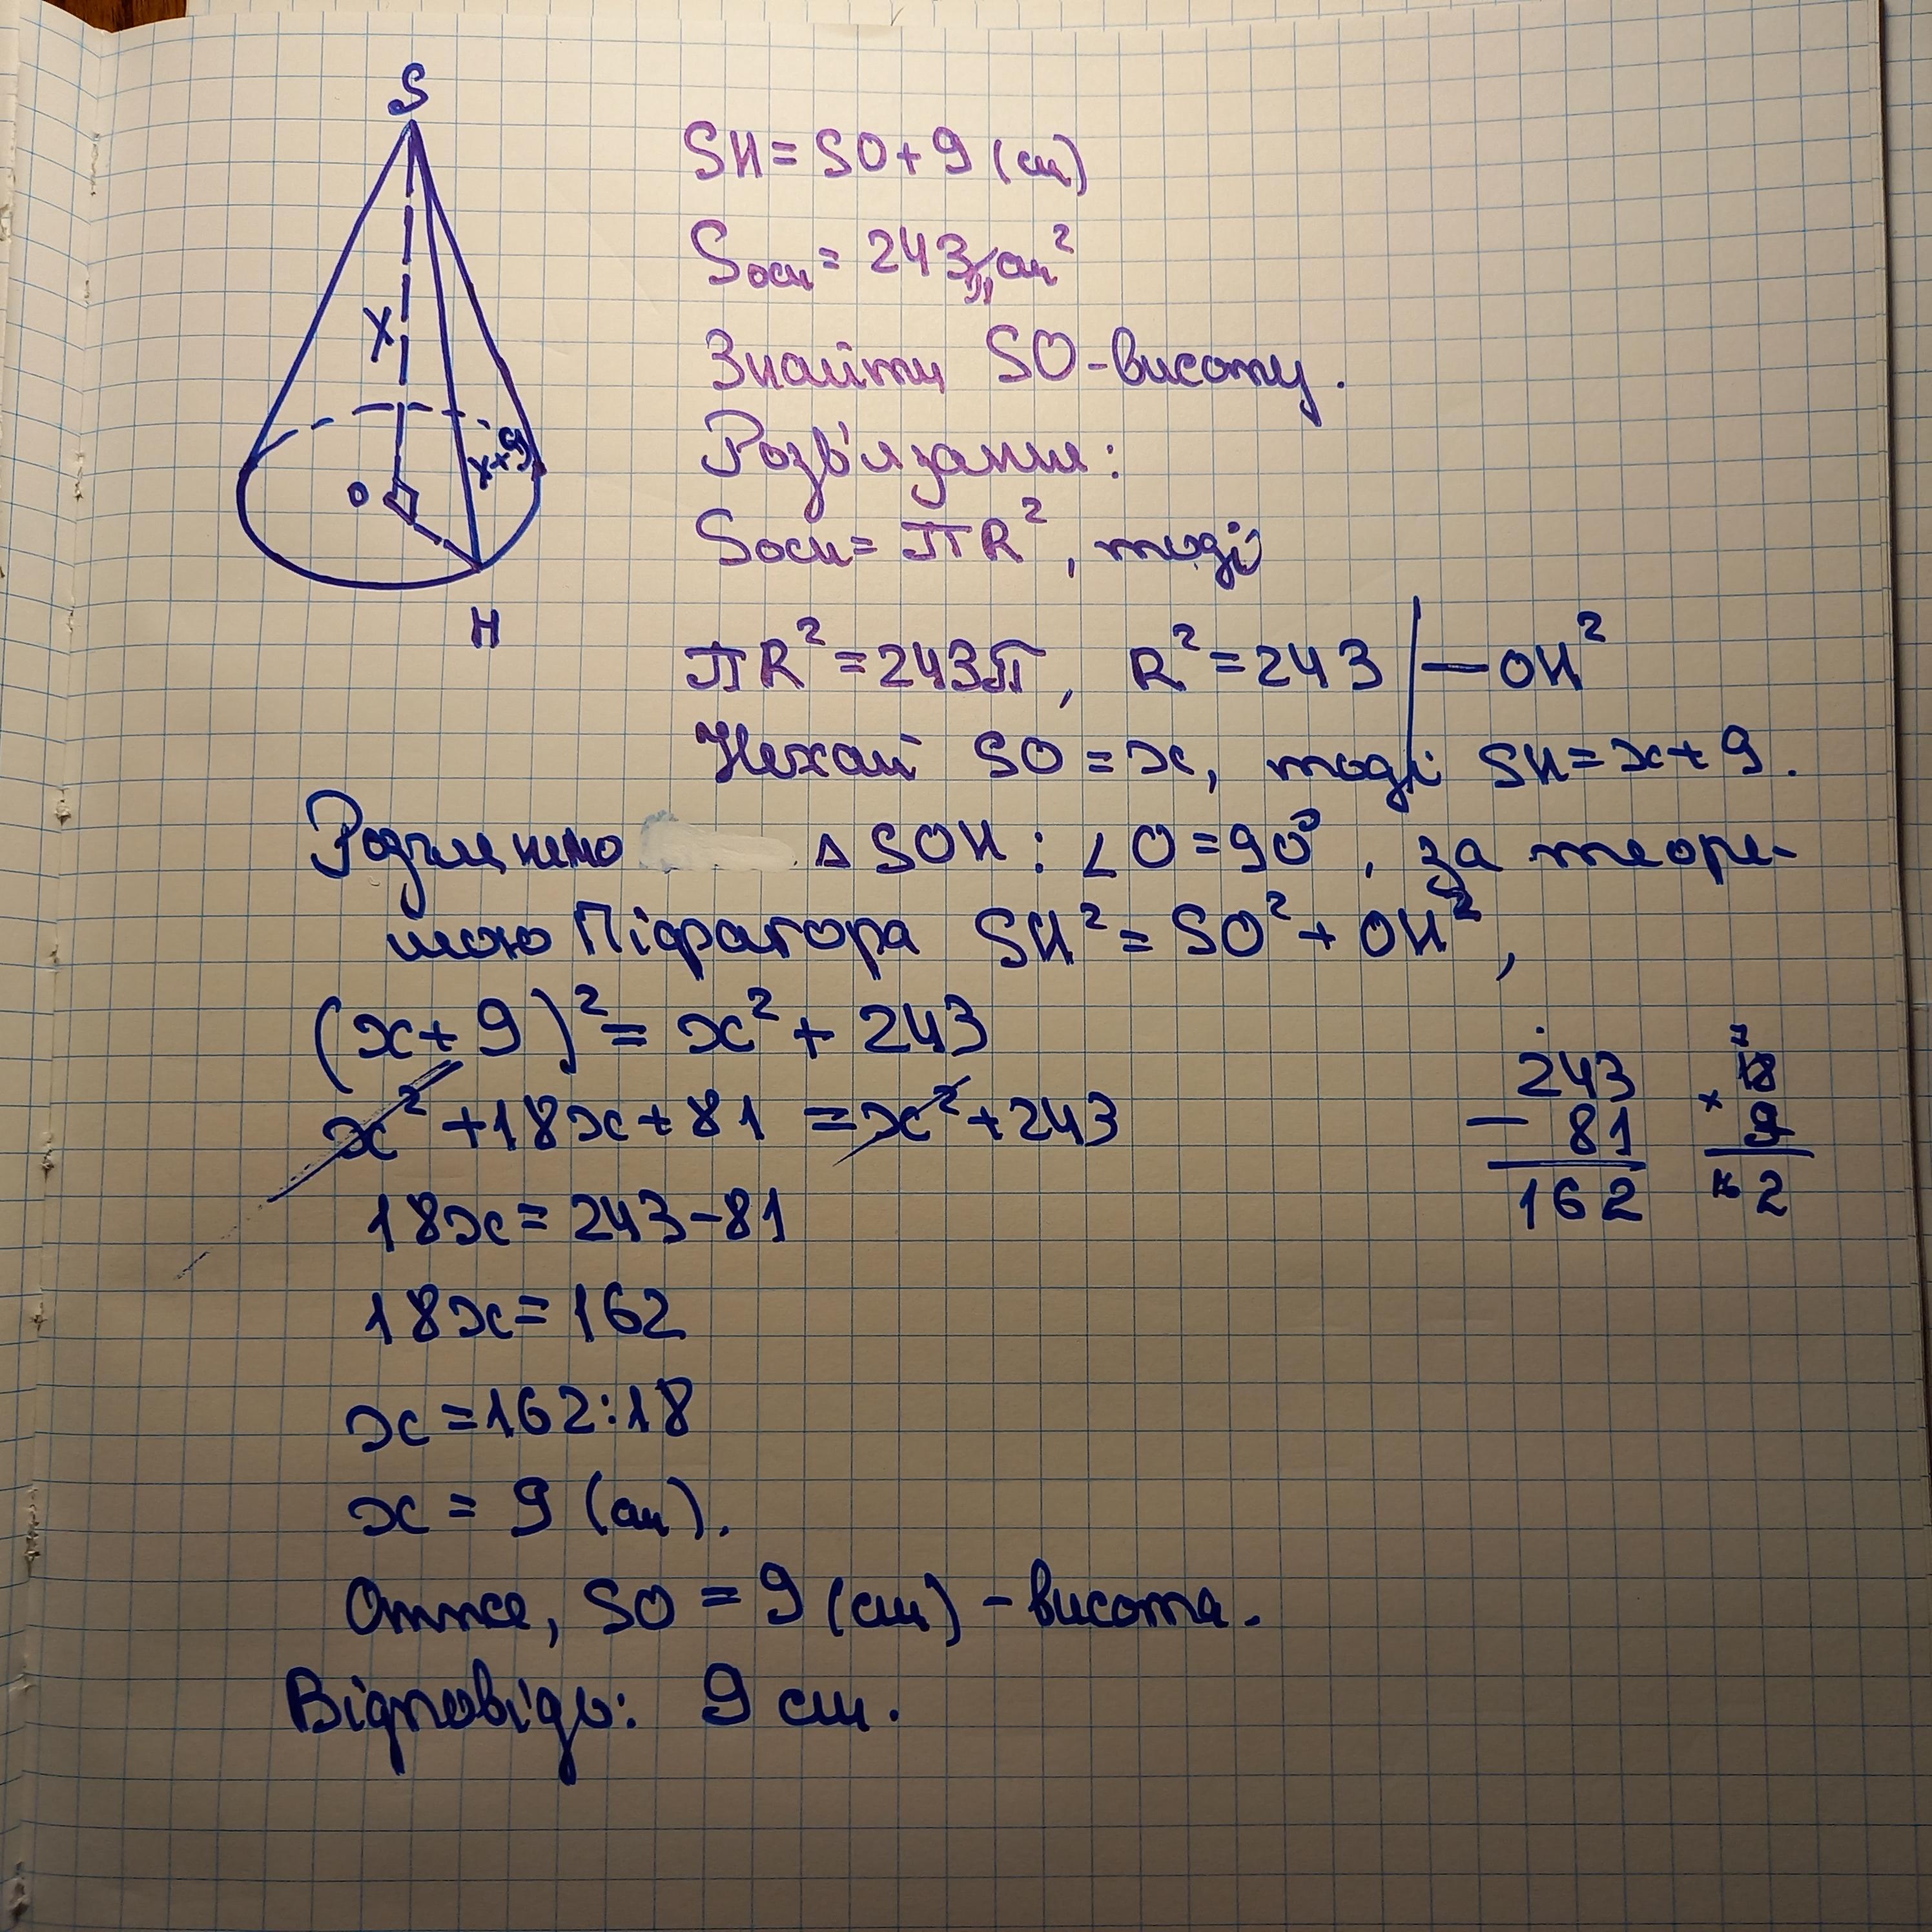 S
X
x+9
O
H
SH = SO + 9 (см)
Sосн = 243π см²
Знайти SO - висоту.
Розв'язання:
Sосн = πR², тоді
πR² = 243π, R² = 243 | — OH²
Нехай SO = x, тоді SH = x + 9.
Розглянемо △ SOH : ∠O = 90°, за теоре-
мою Піфагора SH² = SO² + OH²,
(x + 9)² = x² + 243
x² + 18x + 81 = x² + 243
18x = 243 - 81
18x = 162
x = 162 : 18
x = 9 (см).
Отже, SO = 9 (см) - висота.
Відповідь: 9 см.
243
- 81
162
7
18
× 9
162